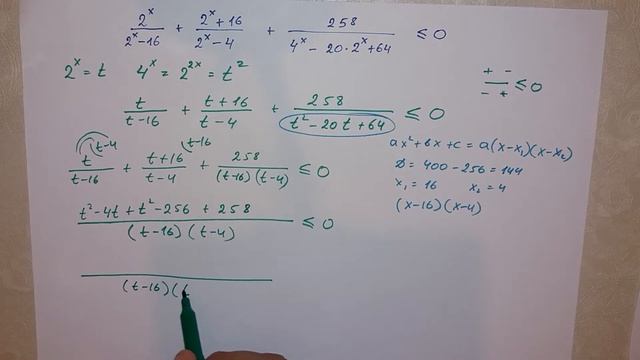 2^x/(2^x-16) + (2^x+16)/(2^x-4) + 258/(4^x - 20·2^x+64) ≤ 0
2^x = t 4^x = 2^(2x) = t^2
+ - / - + ≤ 0
t/(t-16) + (t+16)/(t-4) + 258/(t^2-20t+64) ≤ 0
ax^2+bx+c = a(x-x₁)(x-x₂)
D = 400 - 256 = 144
x₁ = 16 x₂ = 4
(x-16)(x-4)
t-4 t-16
t/(t-16) + (t+16)/(t-4) + 258/((t-16)(t-4)) ≤ 0
(t^2-4t+t^2-256+258)/((t-16)(t-4)) ≤ 0
(t-16)(